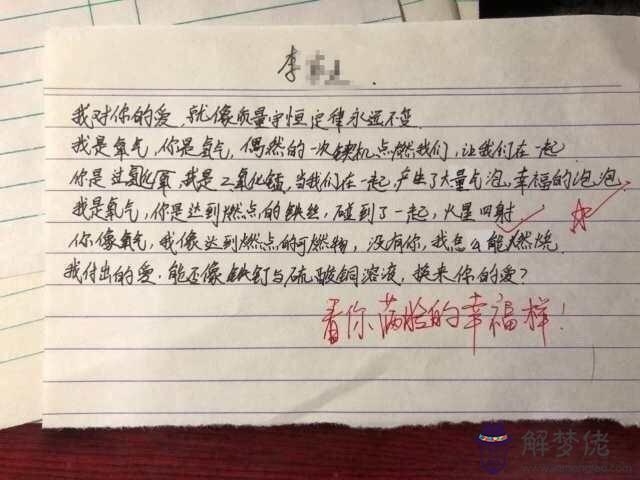 李
我对你的爱 就像质量守恒定律永远不变
我是氧气，你是氢气，偶然的一次契机点燃我们，让我们在一起
你是过氧化氢，我是二氧化锰，当我们在一起，产生了大量气泡，幸福的泡泡
我是氧气，你是达到燃点的铁丝，碰到了一起，火星四射
你像氧气，我像达到燃点的可燃物，没有你，我怎么能燃烧
我付出的爱．能否像铁钉与硫酸铜溶液，换来你的爱？
看你满脸的幸福样！
解梦佬